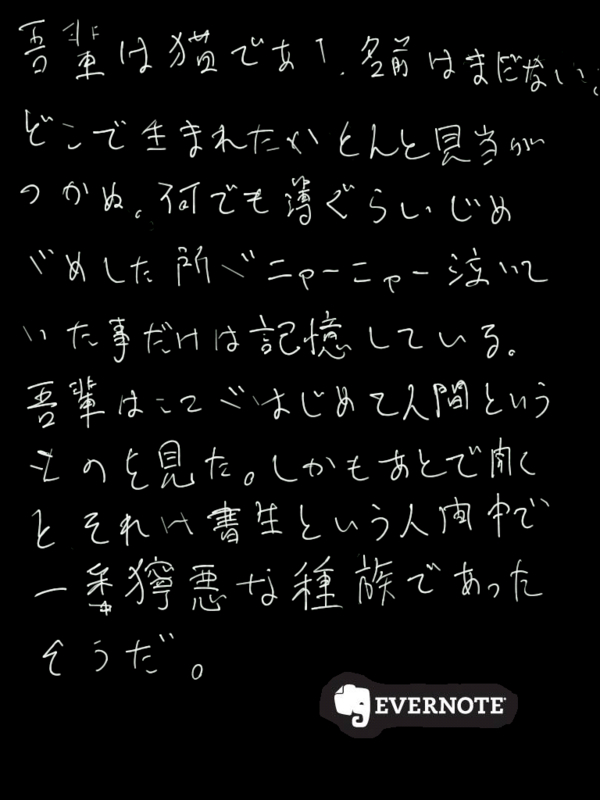 吾輩は猫であ!.名前はまだない。
どこで生まれたかとんと見当が
つかぬ。何でも薄ぐらいじめ
じめした所でニャーニャー泣いて
いた事だけは記憶している。
吾輩はここではじめて人間という
ものを見た。しかもあとで聞く
とそれは書生という人間中で
一番獰悪な種族であった
そうだ。
EVERNOTE